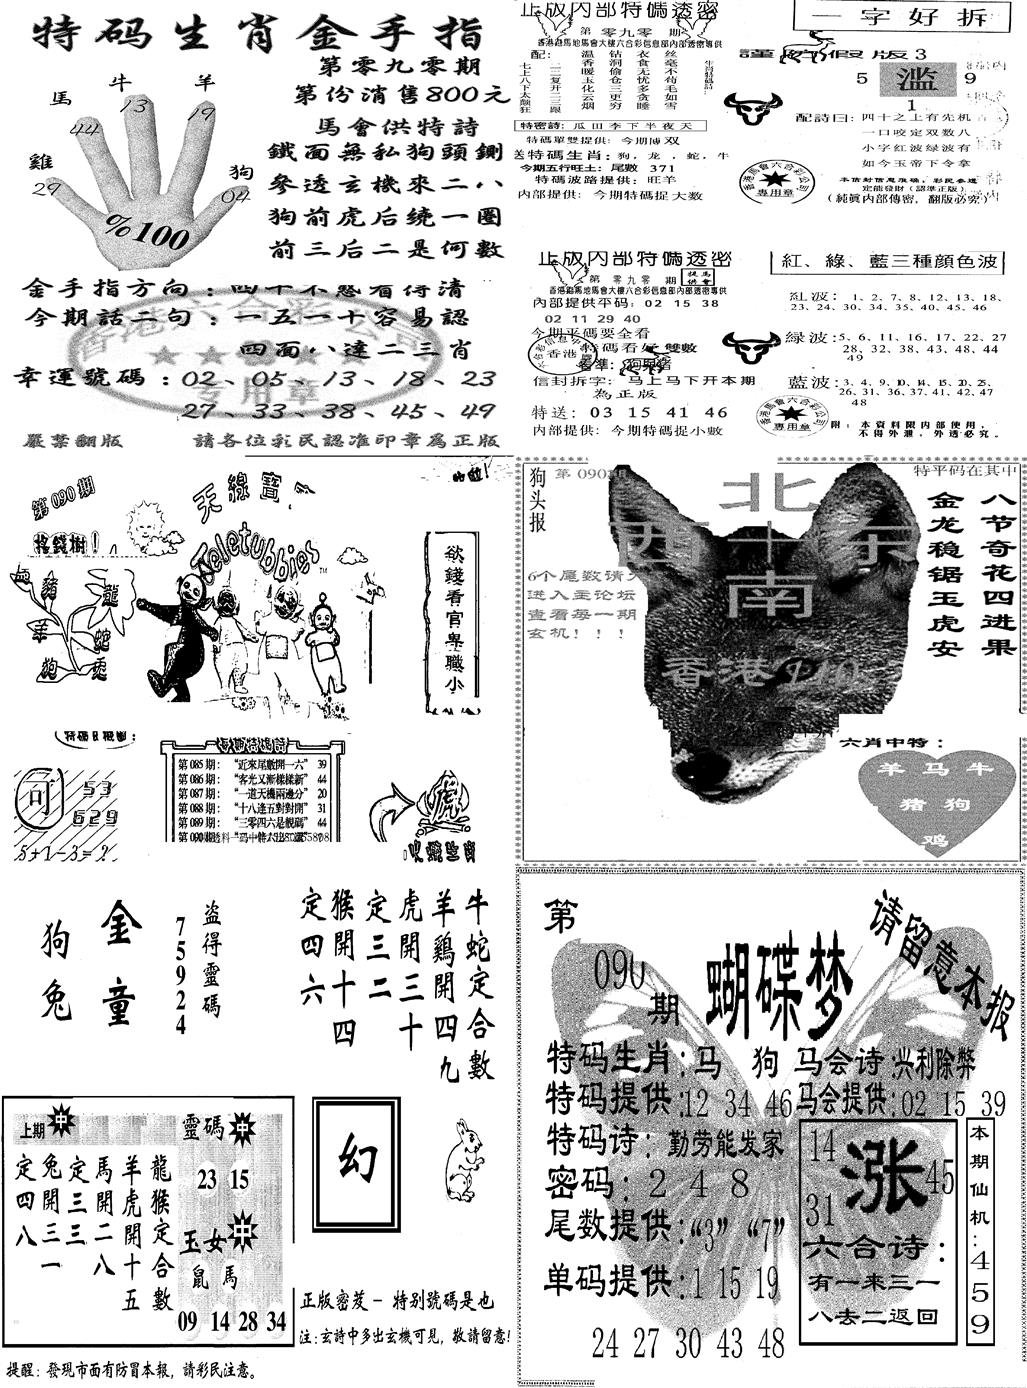 特码生肖金手指
第零九零期
第份消售800元
馬會供特詩
鐵面無私狗頭鍘
參透玄機來二八
狗前虎后繞一圈
前三后二是何數
馬
牛
羊
雞
狗
44
13
19
29
04
%100
金手指方向：
今期話二句：一五一十容易認
四面八達二三肖
幸運號碼：02、05、13、18、23
27、33、38、45、49
嚴禁翻版
請各位彩民認准印章為正版
正版内部特碼透密
第零九零期
香港跑馬地馬會大樓六合彩信息部內部透密專供
配：
七上八下太颠狂
二三复开二三跟
温香暖玉化云烟
钻洞偷仓三更穷
衣食无忧多贪睡
丝毫不苟毛如雪
特密詩：瓜田李下半夜天
特碼單雙提供：今期博双
送特碼生肖：狗，龙，蛇，牛
今期五行旺土：尾數 371
特碼波路提供：旺羊
内部提供：今期特碼捉大数
一字好拆
謹防假版3
5
滥
9
1
配詩曰：四十之上有先机
一口咬定双数八
小字红波绿波有
如今玉帝下令拿
本信封信息准确，彩民参透
定能發財（認準正版）
（純真内部傳密，翻版必究）
專用章
正版内部特碼透密
第零九零期
提供
馬會
香港跑馬地馬會大樓六合彩信息部內部透密專供
内部提供平码：02 15 38
02 11 29 40
今期平碼要全看
特碼看好雙數
香港
看準：狗果猪
信封拆字：马上马下开本期
為正版
特送：03 15 41 46
内部提供：今期特碼捉小數
紅、綠、藍三種顏色波
紅波：1、2、7、8、12、13、18、
23、24、30、34、35、40、45、46
绿波：5、6、11、16、17、22、27
28、32、38、43、48、44
49
藍波：3、4、9、10、14、15、20、25、
26、31、36、37、41、42、47
48
附：本資料限内部使用，
不得外泄，外透必究。
專用章
第090期
天線寶
搖錢樹！
Teletubbies
豬
龍
羊
蛇
狗
兎
欲錢看官卑職小
可
53
629
5+1-3=2
第085期：“近來尾數開一六” 39
第086期：“客光又漸樣樣新” 44
第087期：“一道天機兩邊分” 20
第088期：“十八逢五對對開” 31
第089期：“三零四六是靚碼” 44
虎
狗头报
第090期
特平码在其中
北
西十东
南
八节奇花四进果
金龙稳锯玉虎安
6个尾数请
进入主论坛
查看每一期
玄机！！！
香港
六肖中特：
羊 马 牛
猪 狗
鸡
狗兔
金童
盗得靈碼
75924
牛蛇定合數
羊鷄開四九
虎開三十
定三二
猴開十四
定四六
上期
中
靈碼
中
23 15
龍猴定合數
羊虎開十五
馬開二八
定三三
兔開三一
定四八
玉女
中
鼠 馬
09 14 28 34
幻
正版密芨－特别號碼是也
注：玄詩中多出玄機可見，敬請留意！
提醒：發現市面有防冒本報，請彩民注意。
第
090
期
蝴蝶梦
请留意本报
特码生肖：马 狗
马会诗：兴利除弊
特码提供：12 34 46
马会提供：02 15 39
特码诗：勤劳能发家
密码：2 4 8
尾数提供：“3” “7”
单码提供：1 15 19
24 27 30 43 48
14
涨
45
31
六合诗：
有一来三一
八去二返回
本期仙机：459